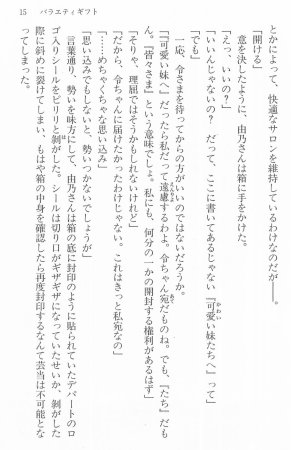 15　バラエティギフト
とかによって、快適なサロンを維持しているわけなのだが――。
「開ける」
意を決したように、由乃さんは箱に手をかけた。
「えっ、いいの？」
「いいんじゃないの？　だって、ここに書いてあるじゃない『可愛い妹たちへ』って」
「でも」
一応、令さまを待ってからの方がいいのではないだろうか。
「『可愛い妹へ』だったら私だって遠慮するわよ。令ちゃん宛だものね。でも、『たち』だもん。『皆々さま』という意味でしょ。私にも、何分の一かの開封する権利があるはず」
「そりゃ、理屈ではそうかもしれないけれど」
「だから、令ちゃんに届けたかったわけじゃない。これはきっと私宛なの」
「めちゃくちゃな思い込み」
「思い込みでもしないと、勢いつかないでしょうが」
言葉通り、勢いを味方にして、由乃さんは箱の底に封印のように貼られていたデパートのロゴ入りシールをピリリと剝がした。シールは切り口がギザギザになっていたせいか、剝がした際に斜めに裂けてしまい、もはや箱の中身を確認したら再度封印するなんて芸当は不可能となってしまった。